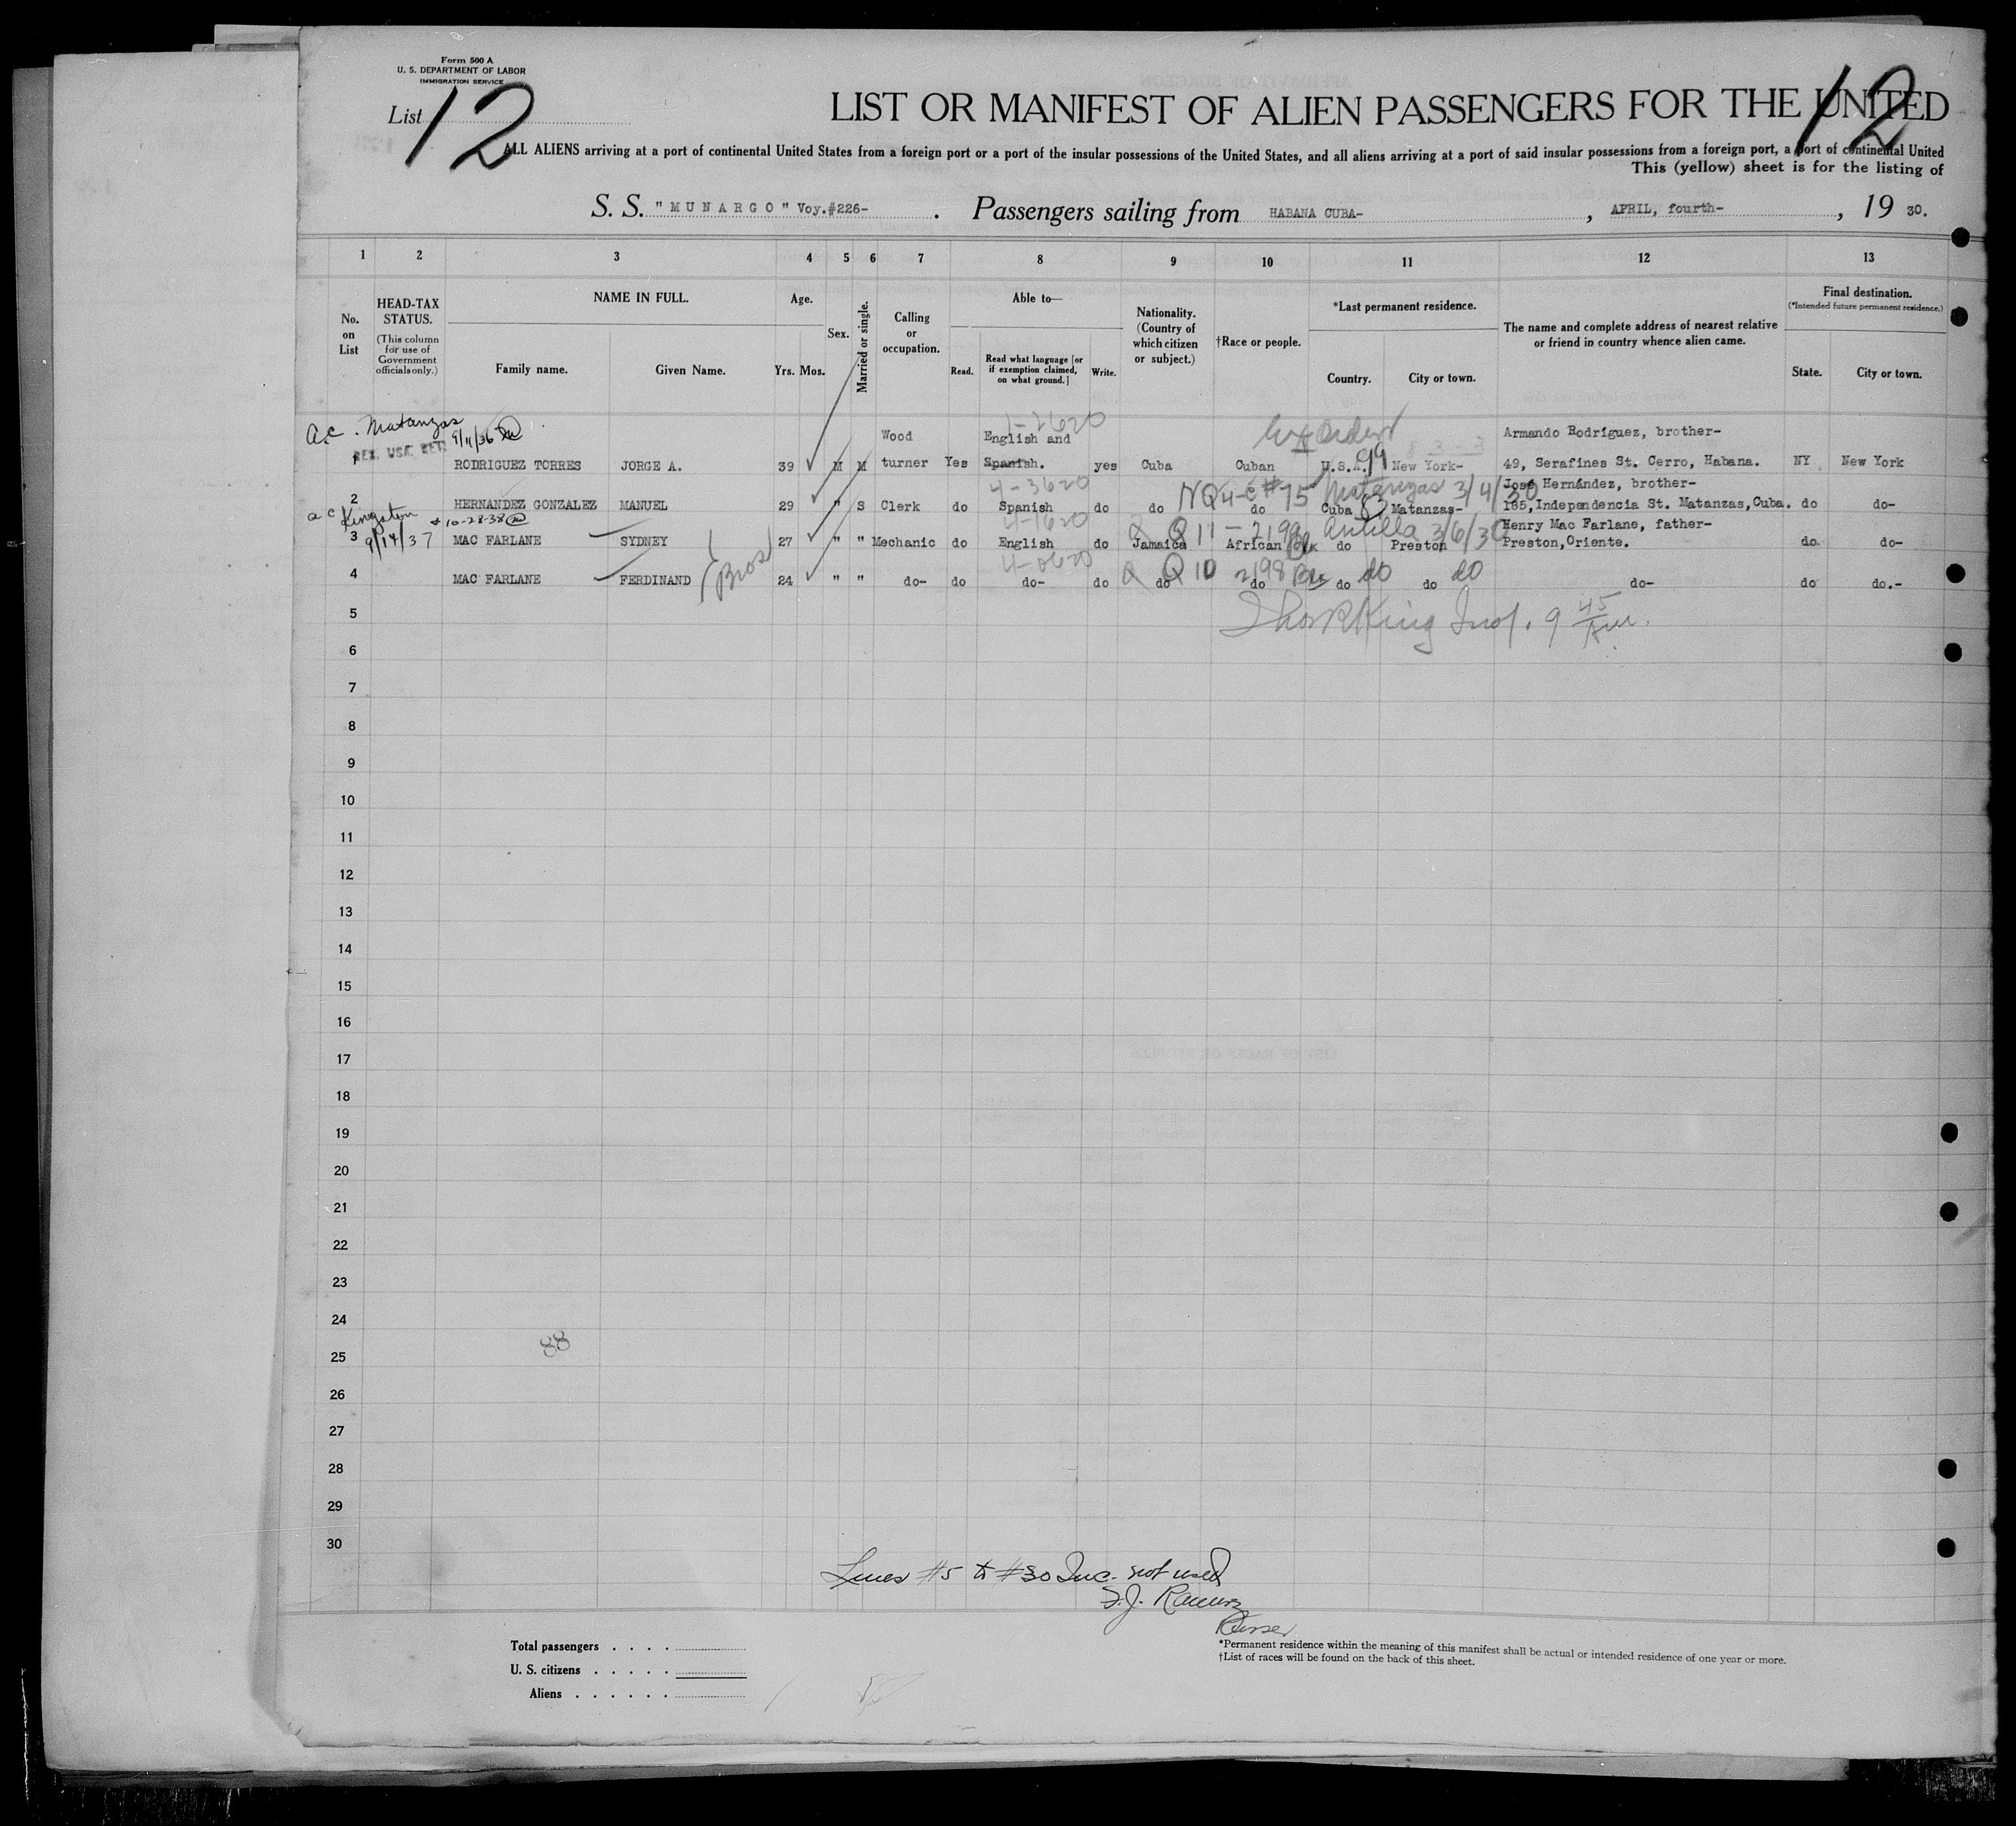 Form 500 A
U. S. DEPARTMENT OF LABOR
IMMIGRATION SERVICE
List 12
12
LIST OR MANIFEST OF ALIEN PASSENGERS FOR THE UNITED
ALL ALIENS arriving at a port of continental United States from a foreign port or a port of the insular possessions of the United States, and all aliens arriving at a port of said insular possessions from a foreign port, a port of continental United
This (yellow) sheet is for the listing of
S. S. "MUNARGO" Voy.#226- . Passengers sailing from HABANA CUBA- , APRIL, fourth- , 19 30.
1 2 3 4 5 6 7 8 9 10 11 12 13
No. on List
HEAD-TAX STATUS.
(This column for use of Government officials only.)
NAME IN FULL.
Family name. Given Name.
Age.
Yrs. Mos.
Sex.
Married or single.
Calling or occupation.
Able to—
Read. Read what language [or if exemption claimed, on what ground.] Write.
Nationality. (Country of which citizen or subject.)
†Race or people.
*Last permanent residence.
Country. City or town.
The name and complete address of nearest relative or friend in country whence alien came.
Final destination.
(*Intended future permanent residence.)
State. City or town.
a.c. Matanzas
9/11/36
1-2620
1 RODRIGUEZ TORRES JORGE A. 39 M M Wood turner Yes English and Spanish. yes Cuba Cuban U.S.A. New York- Armando Rodríguez, brother- 49, Serafines St. Cerro, Habana. NY New York
99
4-3620
2 HERNANDEZ GONZALEZ MANUEL 29 " S Clerk do Spanish do do do Cuba Matanzas- José Hernández, brother- 185,Independencia St. Matanzas,Cuba. do do-
NQ 4-c #75 Matanzas 3/4/30
a c Kingston
9/14/37
10-28-38
4-1620
3 MAC FARLANE SYDNEY 27 " " Mechanic do English do Jamaica African do Preston Henry Mac Farlane, father- Preston,Oriente. do do-
Q 11 - 2199 Antilla 3/6/30
(Bros)
4-0620
4 MAC FARLANE FERDINAND 24 " " do- do do- do do do do do do- do do.-
Q 10 2198 Blk do do
5
9 45 Am.
6
7
8
9
10
11
12
13
14
15
16
17
18
19
20
21
22
23
24
88
25
26
27
28
29
30
Lines #5 to #30 Inc. not used
Purser
Total passengers . . . .
U. S. citizens . . . . .
Aliens . . . . . .
*Permanent residence within the meaning of this manifest shall be actual or intended residence of one year or more.
†List of races will be found on the back of this sheet.